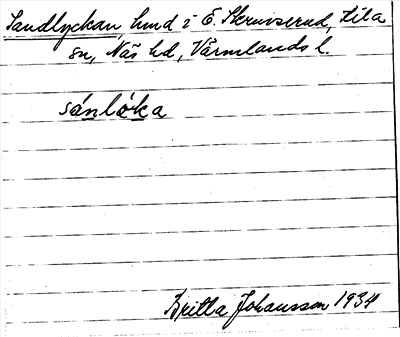 Sandlyckan, hmd i E. Skruvserud, Lilla
sn, Näs hd, Värmlands l.
sánlóka
Britta Johansson 1934